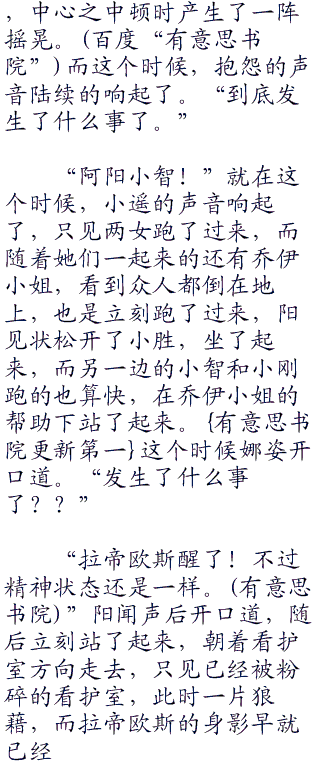 ，中心之中顿时产生了一阵
摇晃。(百度“有意思书
院”)而这个时候，抱怨的声
音陆续的响起了。“到底发
生了什么事了。”
“阿阳小智！”就在这
个时候，小遥的声音响起
了，只见两女跑了过来，而
随着她们一起来的还有乔伊
小姐，看到众人都倒在地
上，也是立刻跑了过来，阳
见状松开了小胜，坐了起
来，而另一边的小智和小刚
跑的也算快，在乔伊小姐的
帮助下站了起来。{有意思书
院更新第一}这个时候娜姿开
口道。“发生了什么事
了？？”
“拉帝欧斯醒了！不过
精神状态还是一样。(有意思
书院)”阳闻声后开口道，随
后立刻站了起来，朝着看护
室方向走去，只见已经被粉
碎的看护室，此时一片狼
藉，而拉帝欧斯的身影早就
已经